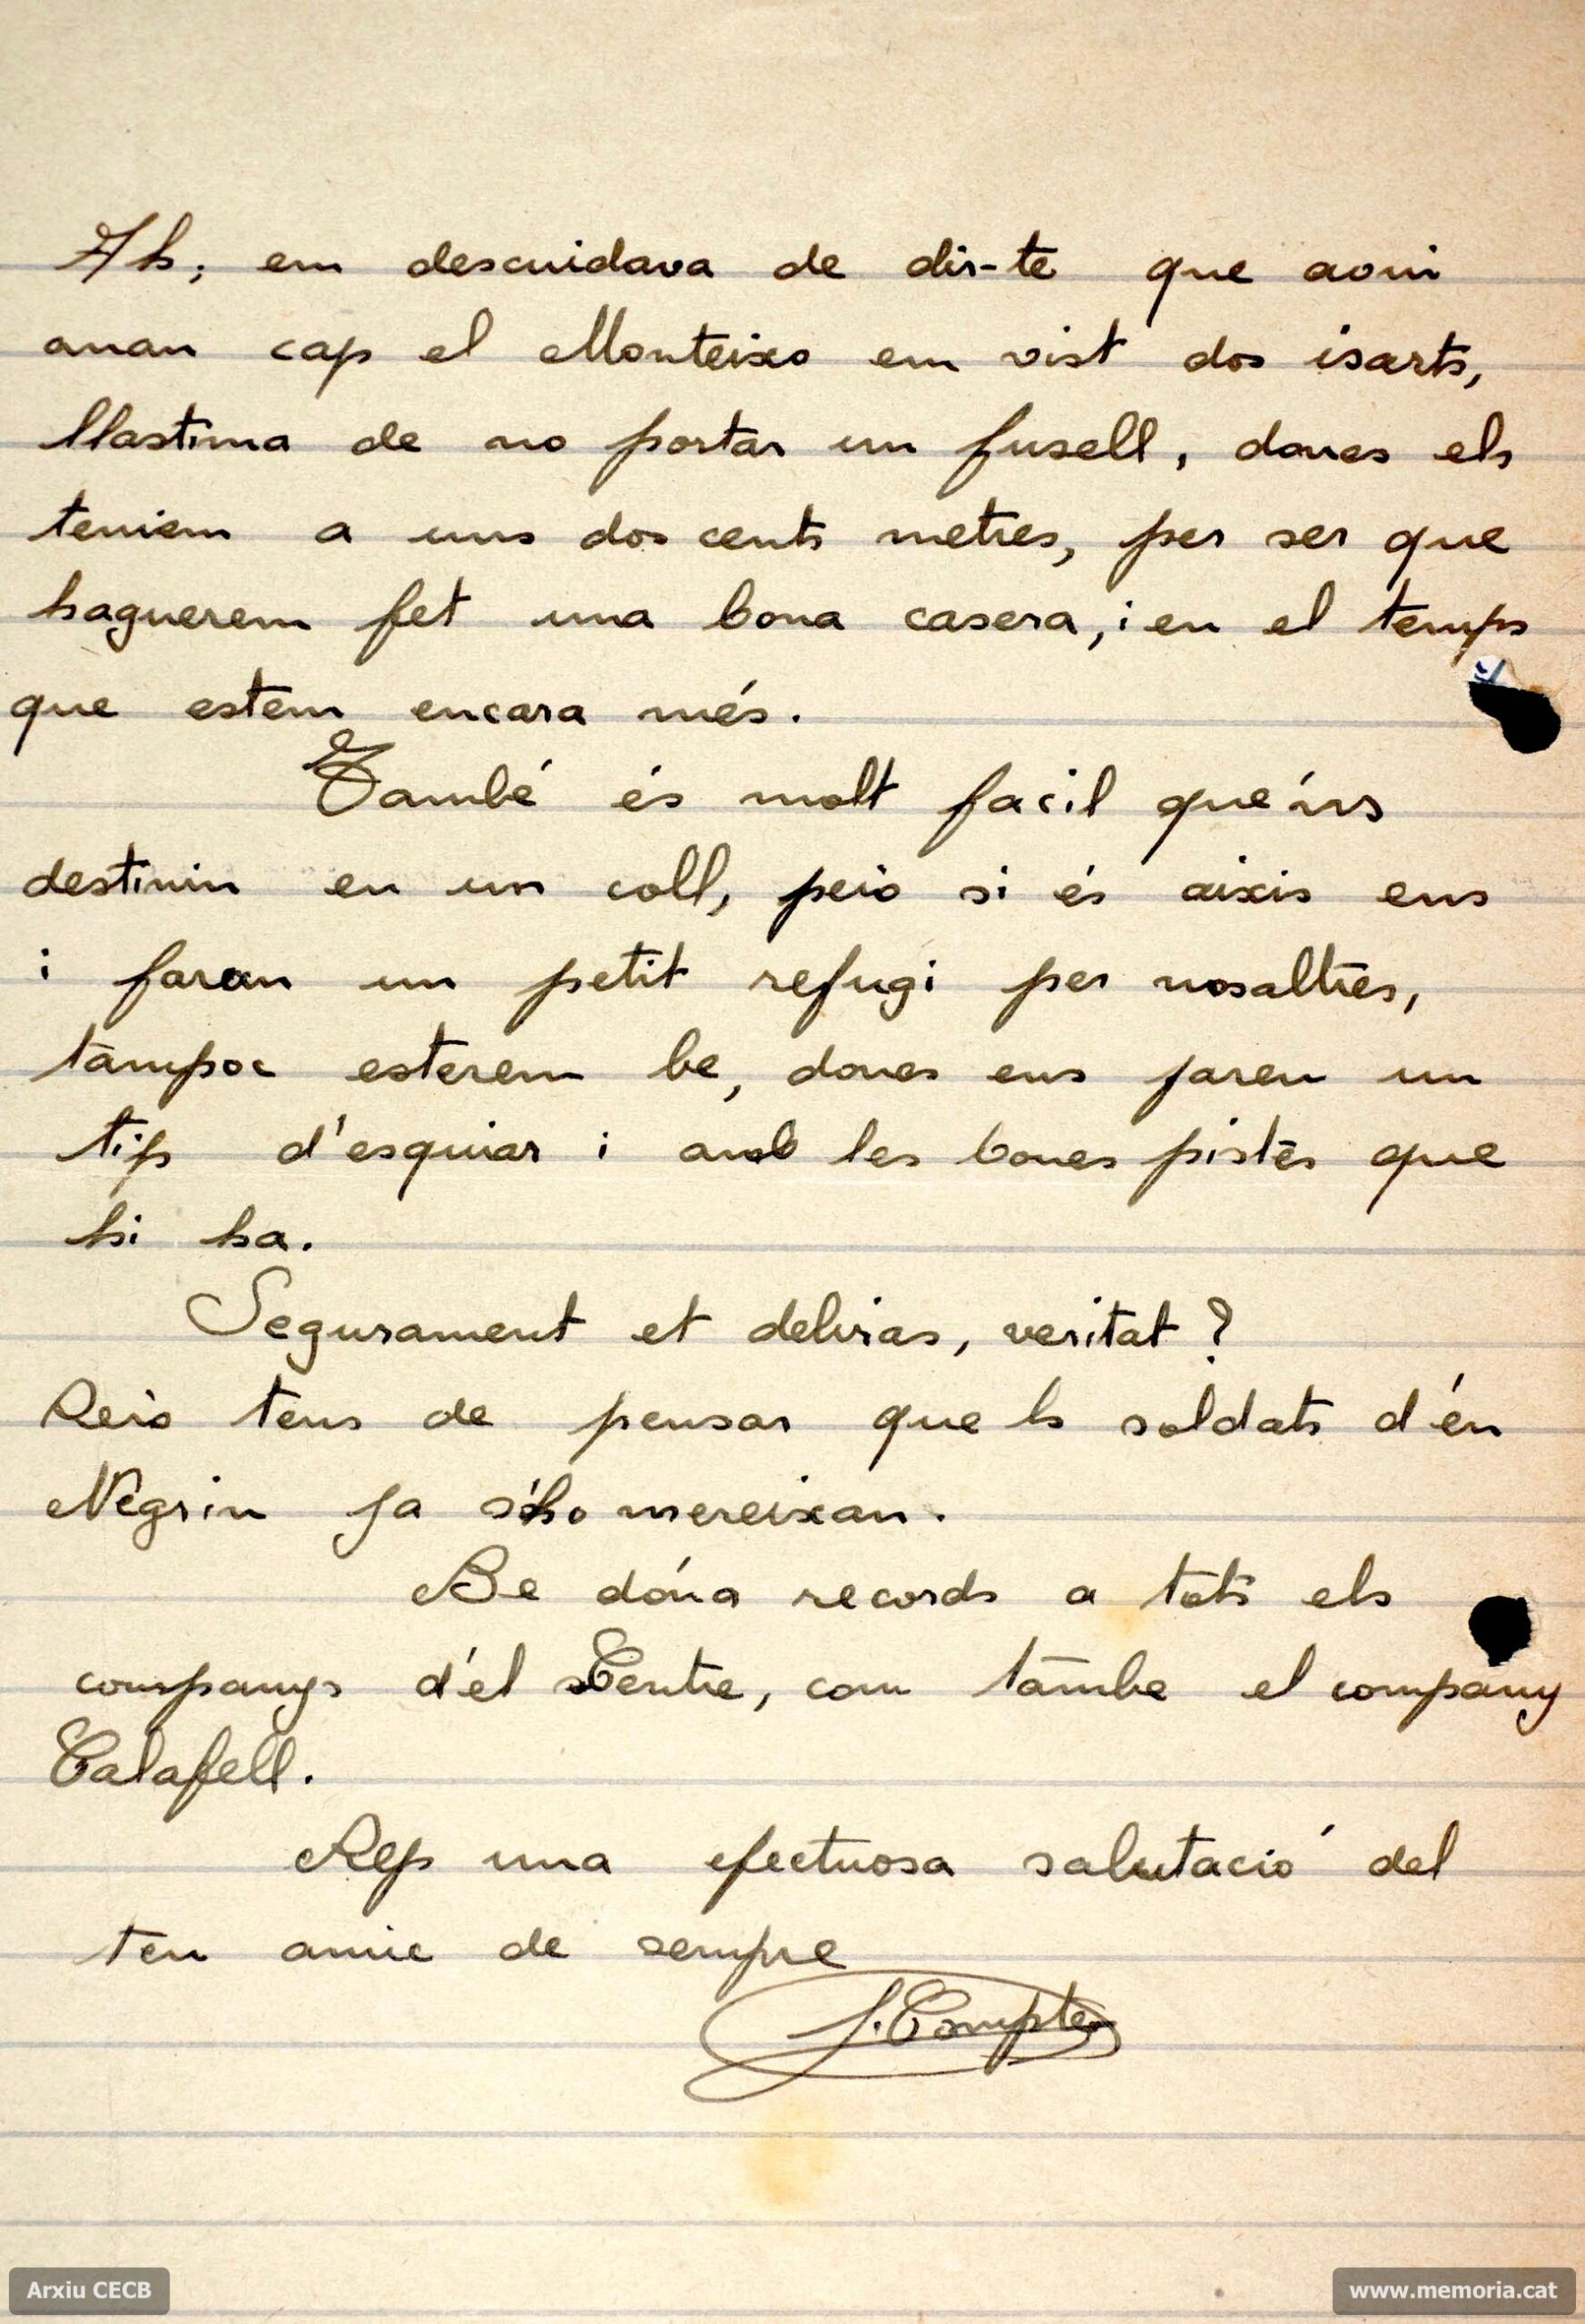 Ah, em descuidava de dir-te que avui
anan cap el Monteixo em vist dos isarts,
llastima de no portar un fusell, doncs els
teniem a uns dos cents metres, per ser que
haguerem fet una bona casera, i en el temps
que estem encara més.
També és molt facil que'ns
destinin en un coll, peró si és aixis ens
i faran un petit refugi per nosaltres,
tampoc esterem be, doncs ens farem un
tip d'esquiar i amb les bones pistes que
hi ha.
Segurament et deliras, veritat?
Peró tens de pensar que ls soldats d'én
Negrin ja s'ho mereixan.
Be dóna records a tots els
companys d'el Centre, com tambe el company
Calafell.
Rep una efectuosa salutació del
teu amic de sempre
J. Comptes
Arxiu CECB
www.memoria.cat